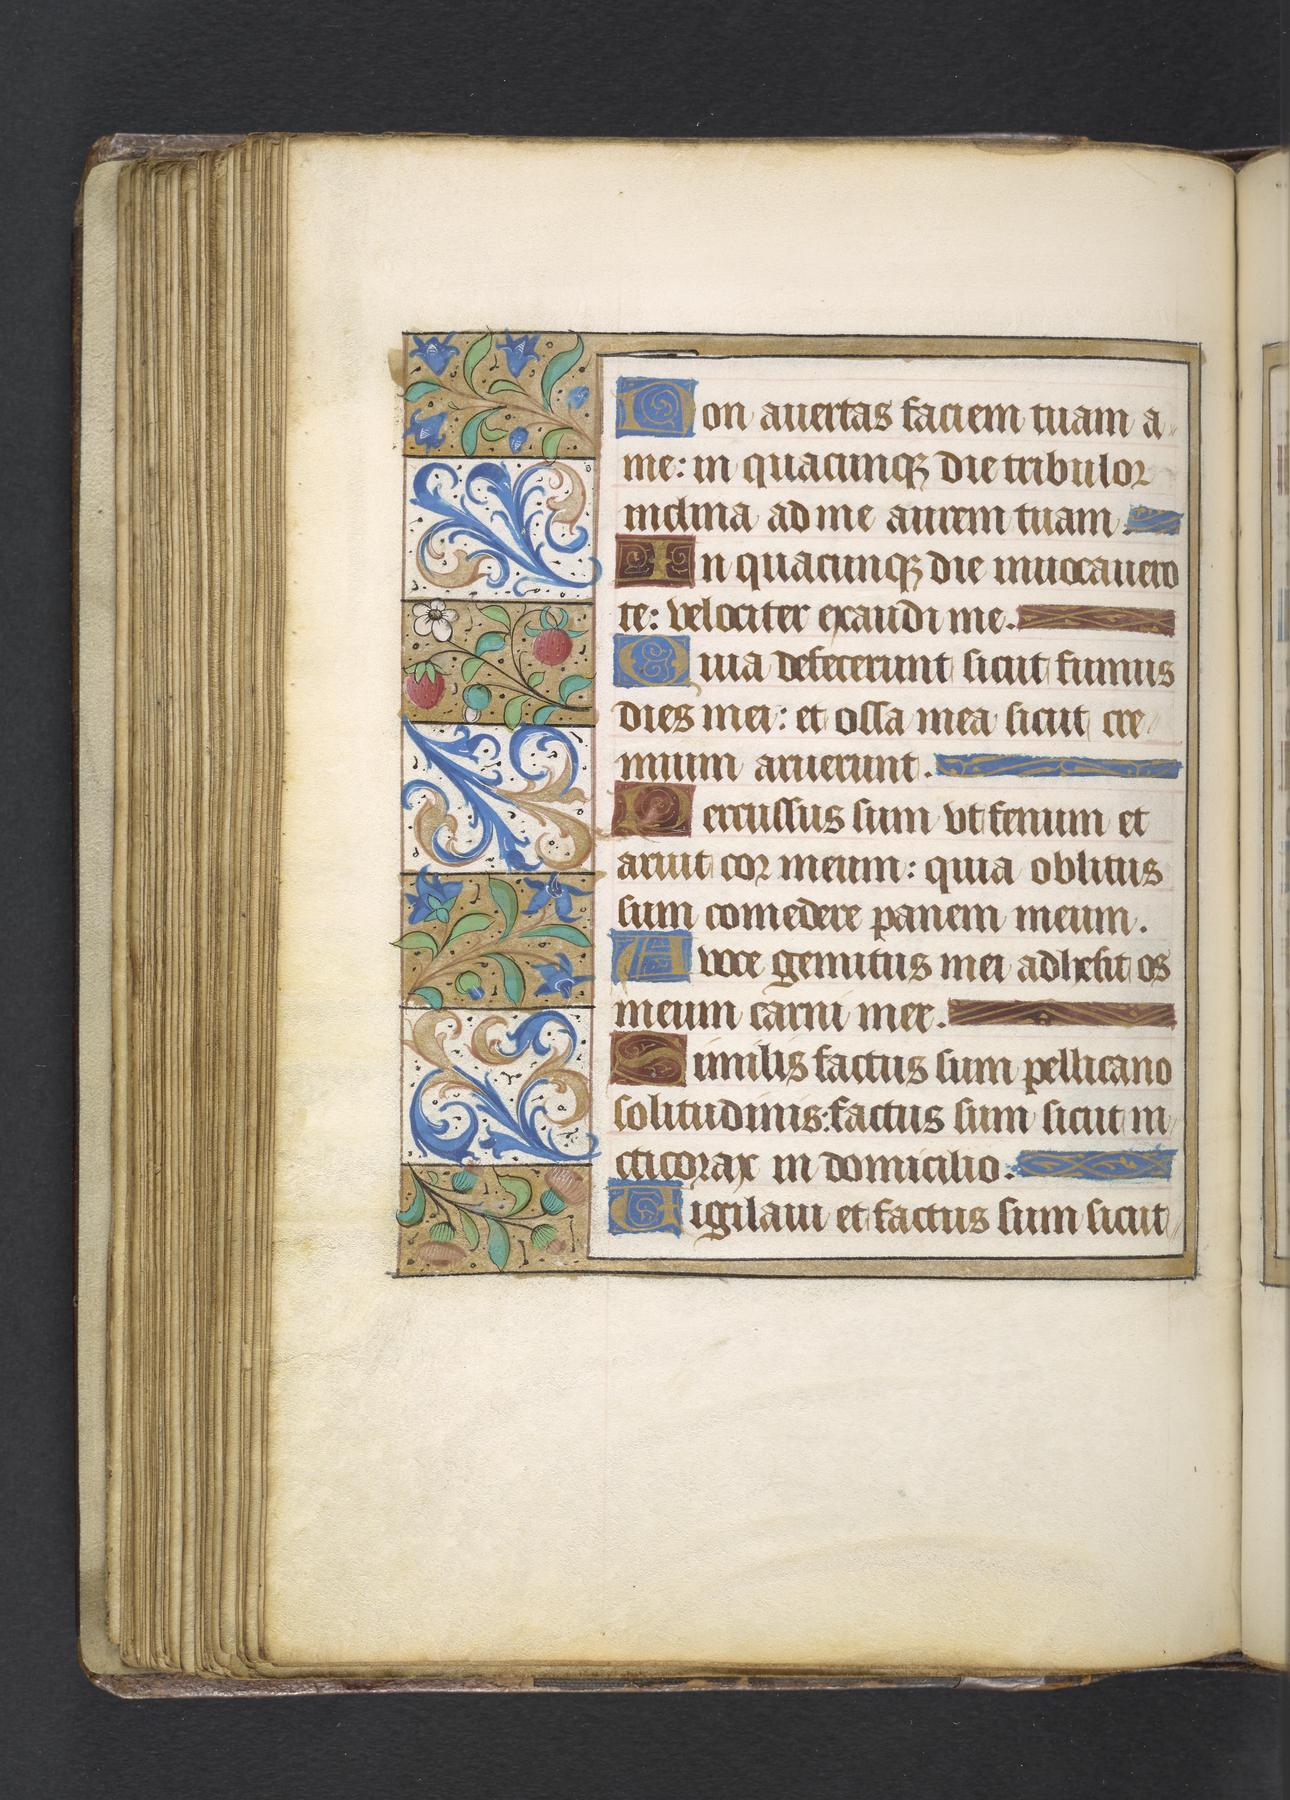 Non auertas faciem tuam a
me: in quacunqz die tribulor
inclina ad me aurem tuam.
In quacunqz die inuocauero
te: velociter exaudi me.
Quia defecerunt sicut fumus
dies mei: et ossa mea sicut cre
mium aruerunt.
Percussus sum vt fenum et
aruit cor meum: quia oblitus
sum comedere panem meum.
A voce gemitus mei adhesit os
meum carni mee.
Similis factus sum pellicano
solitudinis: factus sum sicut ni
cticorax in domicilio.
Uigilaui et factus sum sicut